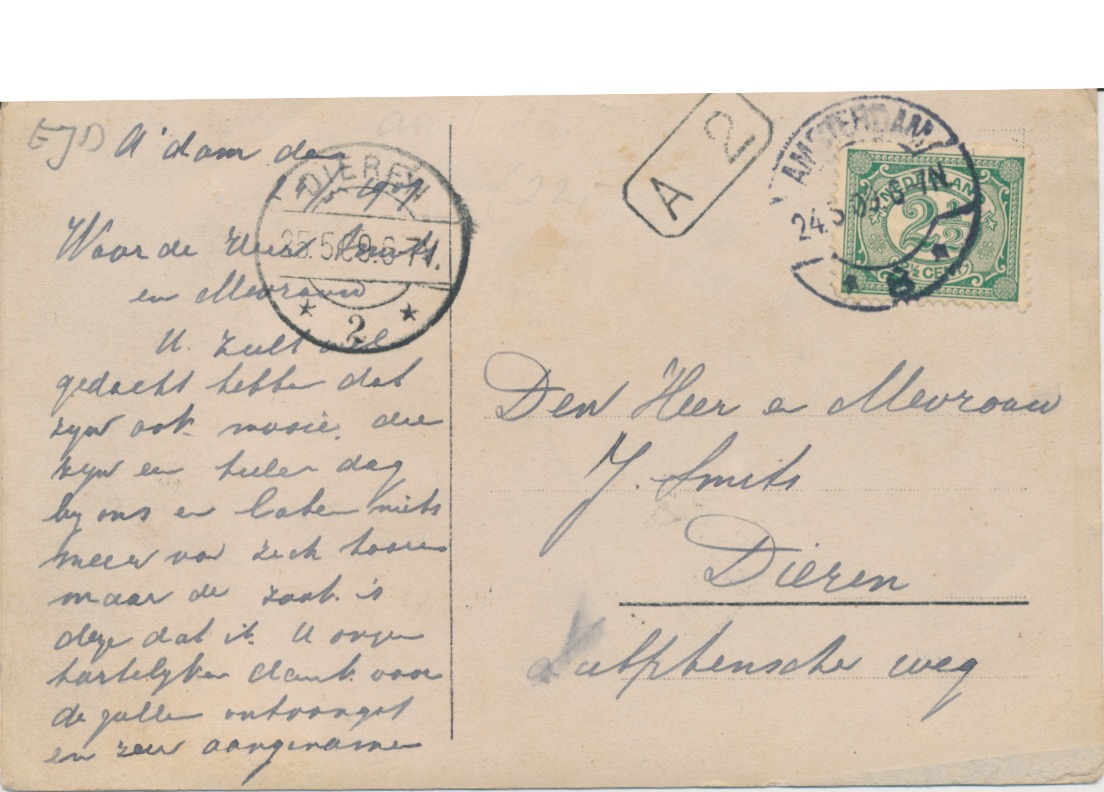 EJD
A'dam den
DIEREN
25.5.09.6-7N.
2
Waarde Heer Smits
en Mevrouw
U. zult wel
gedacht hebben dat
zijn ook mooie. die
zijn en heelen dag
bij ons en laten niets
meer van zich hooren
maar de zaak is
deze dat ik U
hartelijken dank voor
de gulle ontvangst
en zeer aangename
A 2
AMSTERDAM
24.5.09.6-7N
B
NEDERLAND
2½
2½ CENT
Den Heer en Mevrouw
J. Smits
Dieren
Zutphensche weg